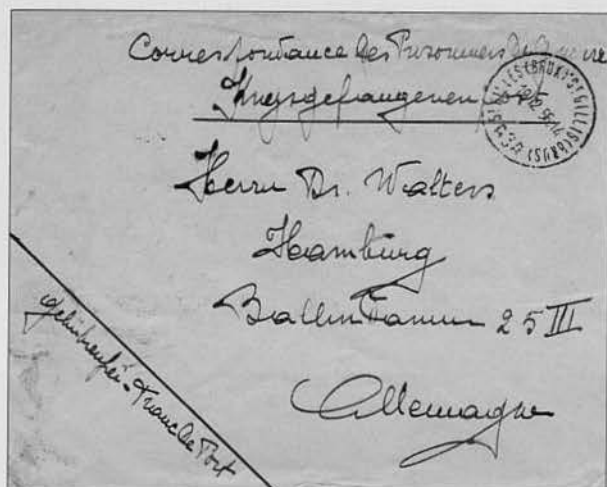 Correspondance des Prisonniers de Guerre
Kriegsgefangenenpost
Herrn Dr. Walters
Hamburg
Ballindamm 25 III
Allemagne
Gebührenfrei - Franc de Port